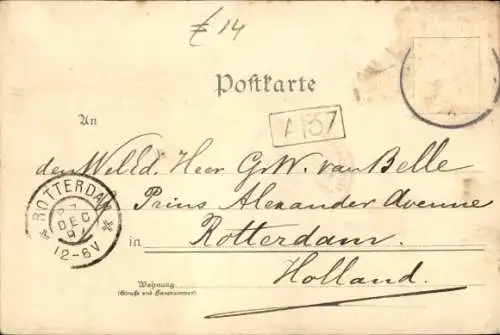 £ 14
Postkarte
A 137
An
den WelEd. Heer G. W. van Belle
Prins Alexander Avenue
in Rotterdam.
Holland.
ROTTERDAM
DEC
12-6V
Wohnung
(Straße und Hausnummer)